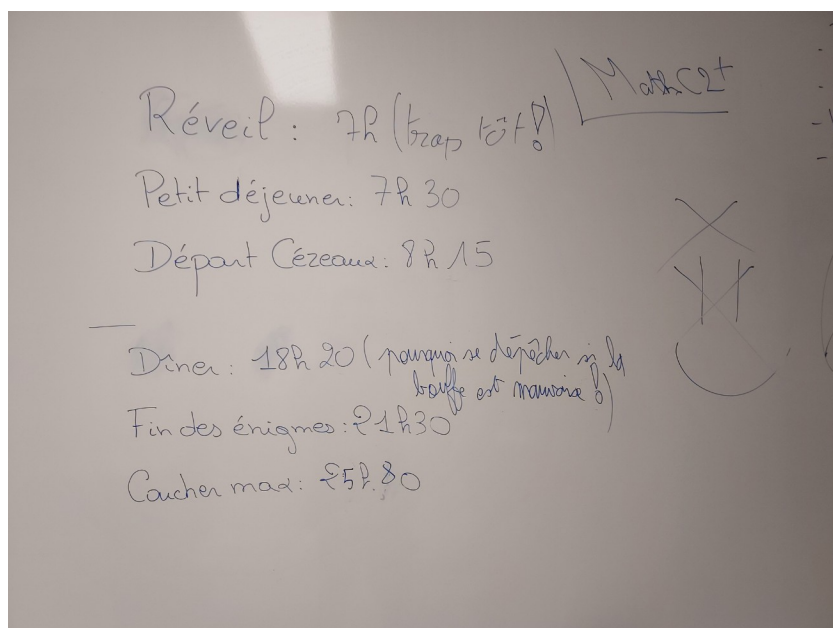 MathC2+
Réveil : 7h (trop tôt !)
Petit déjeuner : 7h30
Départ Cézeaux : 8h15
Dîner : 18h20 (pourquoi se dépêcher si la
bouffe est mauvaise !)
Fin des énigmes : 21h30
Coucher max : 25h80